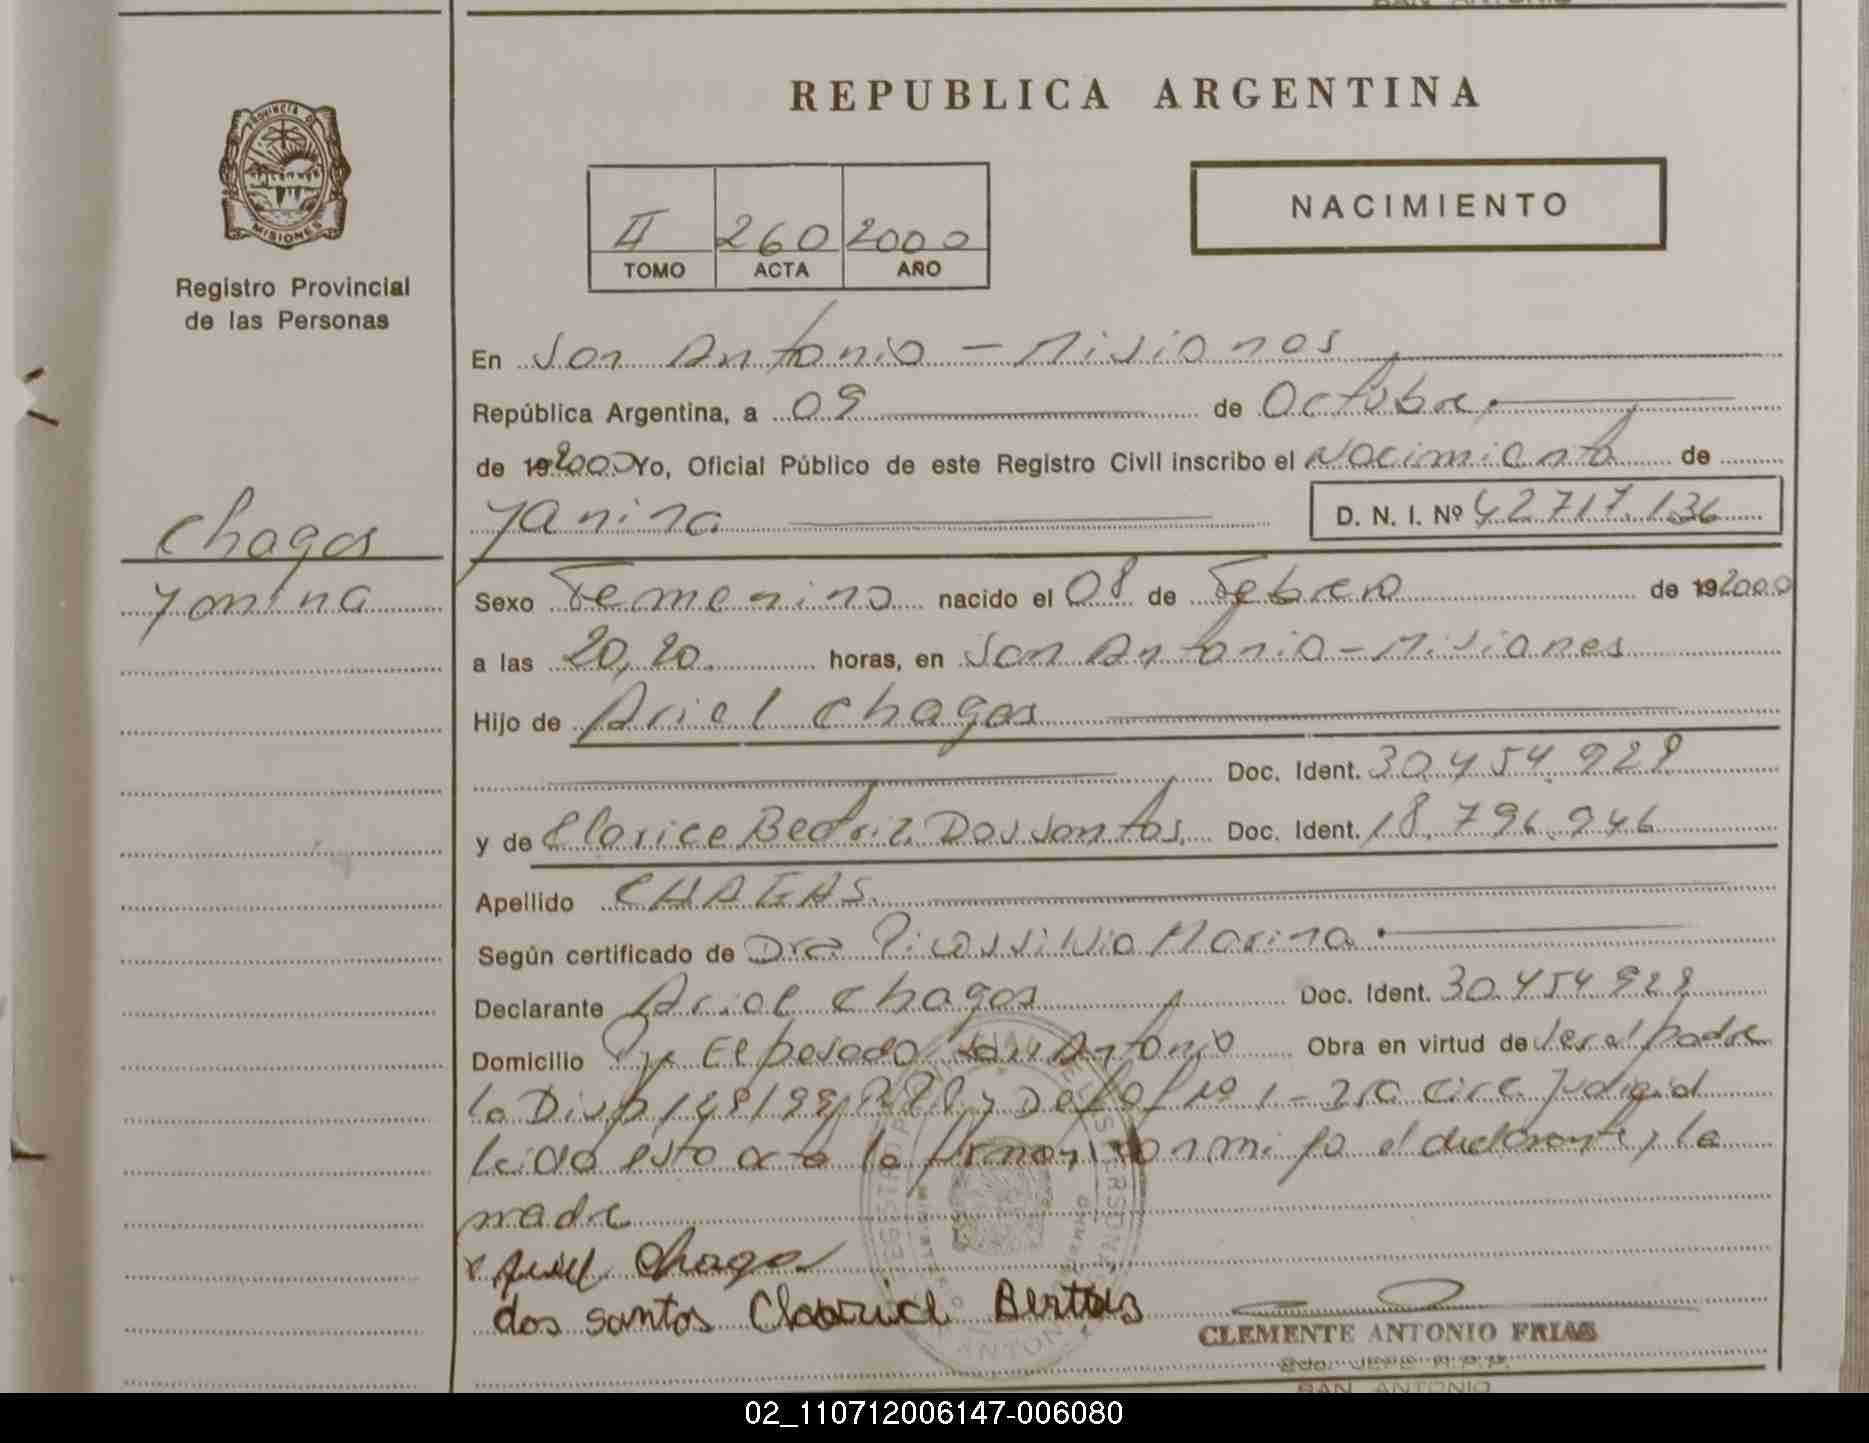 REPUBLICA ARGENTINA
PROVINCIA DE
MISIONES
Registro Provincial
de las Personas
II 260 2000
TOMO ACTA AÑO
NACIMIENTO
En San Antonio - Misiones
República Argentina, a 09 de Octubre
de 19 2000 Yo, Oficial Público de este Registro Civil inscribo el Nacimiento de
Yanina D. N. I. Nº 42717.136
Chagas
Yanina
Sexo Femenino nacido el 08 de Febrero de 19 2000
a las 20,20 horas, en San Antonio - Misiones
Hijo de Ariel Chagas
Doc. Ident. 30.454.928
y de Clarice Beatriz Dos Santos Doc. Ident. 18.796.946
Apellido CHAGAS
Según certificado de Dra. Marina
Declarante Ariel Chagas Doc. Ident. 30.454.928
Domicilio Pje El pesado San Antonio Obra en virtud de ser el padre
la Disp 148/99 y Def Of Nº 1 - 3ra Circ. Judicial
leida esta acta la firman con mi fo el declarante y la
madre
Ariel Chaga
dos santos
CLEMENTE ANTONIO FRIAS
SAN ANTONIO
02_110712006147-006080